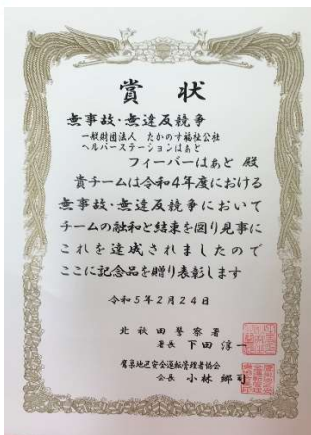 賞状
無事故・無違反競争
一般財団法人 たかのす福祉公社
ヘルパーステーションはあと
フィーバーはあと 殿
貴チームは令和4年度における
無事故・無違反競争において
チームの融和と結束を図り見事に
これを達成されましたので
ここに記念品を贈り表彰します
令和5年2月24日
北秋田警察署
署長 下田淳一
鷹巣地区安全運転管理者協会
会長 小林郷司